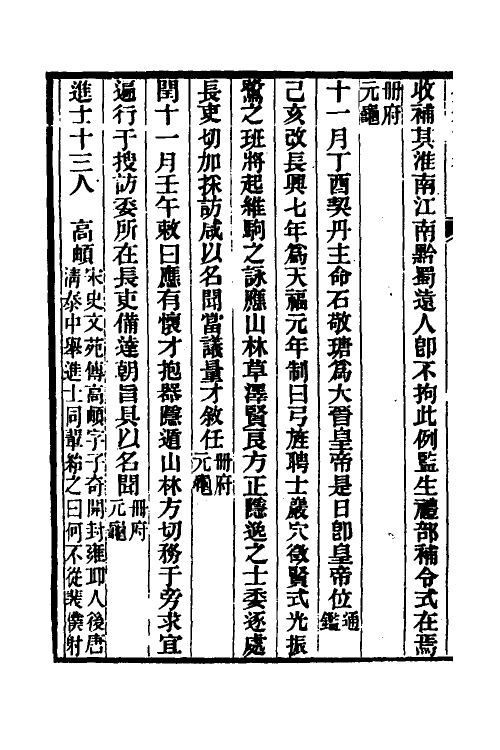 收補其淮南江南黔蜀遠人卽不拘此例監生禮部補令式在焉
冊府
元龜
十一月丁酉契丹主命石敬瑭爲大晉皇帝是日卽皇帝位通
鑑
己亥改長興七年爲天福元年制曰弓旌聘士巖穴徵賢式光振
鷺之班將起維駒之詠應山林草澤賢良方正隱逸之士委逐處
長吏切加採訪咸以名聞當議量才敘任冊府
元龜
閏十一月壬午敕曰應有懷才抱器隱遁山林方切務于旁求宜
遍行于搜訪委所在長吏備達朝旨具以名聞冊府
元龜
進士十三人　高頔宋史文苑傳高頔字子奇開封雍邱人後唐
淸泰中舉進士同輩紿之曰何不從裴僕射